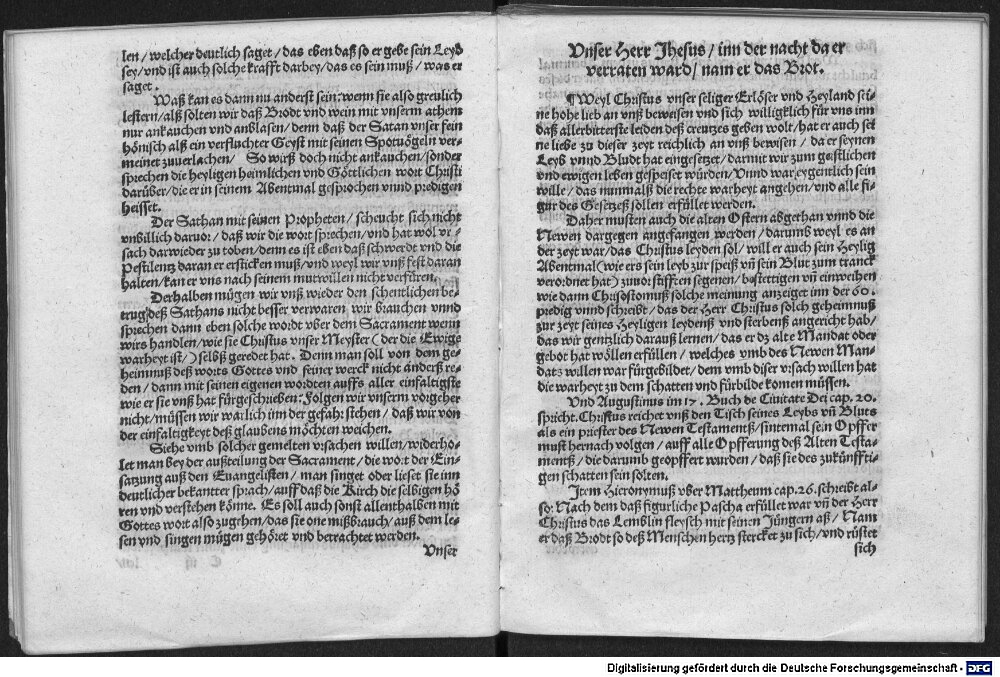 len / welcher deutlich saget / das eben daß so er gebe sein Leyb
sey / vnd ist auch solche krafft darbey / das es sein muß / was er
saget.
Waß kan es dann nu anderst sein: wenn sie also greulich
lestern / alß solten wir daß Brodt vnd wein mit vnserm athem
nur ankauchen vnd anblasen / denn daß der Satan vnser fein
hönisch alß ein verfluchter Geyst mit seinen Spotuögeln ver-
meinet zuuerlachen / So wirß doch nicht ankauchen / sonder
sprechen die heyligen heimlichen vnd Göttlichen wort Christi
darüber / die er in seinem Abentmal gesprochen vnnd predigen
heisset.
Der Sathan mit seinen Propheten / scheucht sich nicht
vnbillich daruor / daß wir die wort sprechen / vnd hat wol vr-
sach darwieder zu toben / denn es ist eben daß schwerdt vnd die
Pestilentz daran er ersticken muß / vnd weyl wir vnß fest daran
halten / kan er vns nach seinem mutwillen nicht verfüren.
Derhalben mügen wir vnß wieder den schentlichen be-
trug deß Sathans nicht besser verwaren wir brauchen vnnd
sprechen dann eben solche wordt vber dem Sacrament wenn
wirs handlen / wie sie Christus vnser Meyster ( der die Ewige
warheyt ist / ) selbß geredet hat. Denn man soll von dem ge-
heimnuß deß worts Gottes vnd seiner werck nicht anderß re-
den / dann mit seinen eigenen wordten auffs aller einfaltigste
wie er sie vnß hat fürgeschrieben: Folgen wir vnserm vorgeher
nicht / müssen wir warlich inn der gefahr stehen / daß wir von
der einfaltigkeyt deß glaubens möchten weichen.
Siehe vmb solcher gemelten vrsachen willen / widerho-
let man bey der außteilung der Sacrament / die wort der Ein-
satzung auß den Euangelisten / man singet oder lieset sie inn
deutlicher bekantter sprach / auff daß die Kirch die selbigen hö
ren vnd verstehen könne. Es soll auch sonst allenthalben mit
Gottes wort also zugehen / das sie one mißbrauch / auß dem le-
sen vnd singen mügen gehöret vnd betrachtet werden.
Vnser
Vnser Herr Jhesus / inn der nacht da er
verraten ward / nam er das Brot.
¶ Weyl Christus vnser seliger Erlöser vnd Heyland sei-
ne hohe lieb an vnß beweisen vnd sich willigklich für vns inn
daß allerbitterste leiden deß creutzes geben wolt / hat er auch sei
ne liebe zu dieser zeyt reichlich an vnß bewisen / da er seynen
Leyb vnnd Bludt hat eingesetzet / darmit wir zum geistlichen
vnd ewigen leben gespeiset würden / Vnnd war eygentlich sein
wille / das nunmalß die rechte warheyt angehen / vnd alle fi-
gur des Gesetzeß sollen erfüllet werden.
Daher musten auch die alten Ostern abgethan vnnd die
Newen dargegen angefangen werden / darumb weyl es an
der zeyt war / das Christus leyden sol / will er auch sein Heylig
Abentmal ( wie ers sein leyb zur speiß vñ sein Blut zum tranck
verordnet hat ) zuuor stifften segenen / bestettigen vñ einweihen
wie dann Chrisostomuß solche meinung anzeiget inn der 60.
predig vnnd schreibt / das der Herr Christus solch geheimnuß
zur zeyt seines Heyligen leydenß vnd sterbenß angericht hab /
das wir gentzlich darauß lernen / das er dz alte Mandat oder
gebot hat wöllen erfüllen / welches vmb des Newen Man-
datz willen war fürgebildet / dem vmb diser vrsach willen hat
die warheyt zu dem schatten vnd fürbilde komen müssen.
Vnd Augustinus im 17. Buch de Ciuitate Dei cap. 20.
spricht. Christus reichet vnß den Tisch seines Leybs vñ Bluts
als ein priester des Newen Testamentß / sintemal sein Opffer
must hernach volgen / auff alle Opfferung deß Alten Testa-
mentß / die darumb geopffert wurden / daß sie des zukünffti-
gen schatten sein solten.
Item Hieronymuß vber Mattheum cap. 26. schreibt al-
so: Nach dem daß figurliche Pascha erfüllet war vñ der Herr
Christus das Lemblin fleysch mit seinen Jüngern aß / Nam
er daß Brodt so deß Menschen hertz stercket zu sich / vnd rüstet
sich
Digitalisierung gefördert durch die Deutsche Forschungsgemeinschaft - DFG